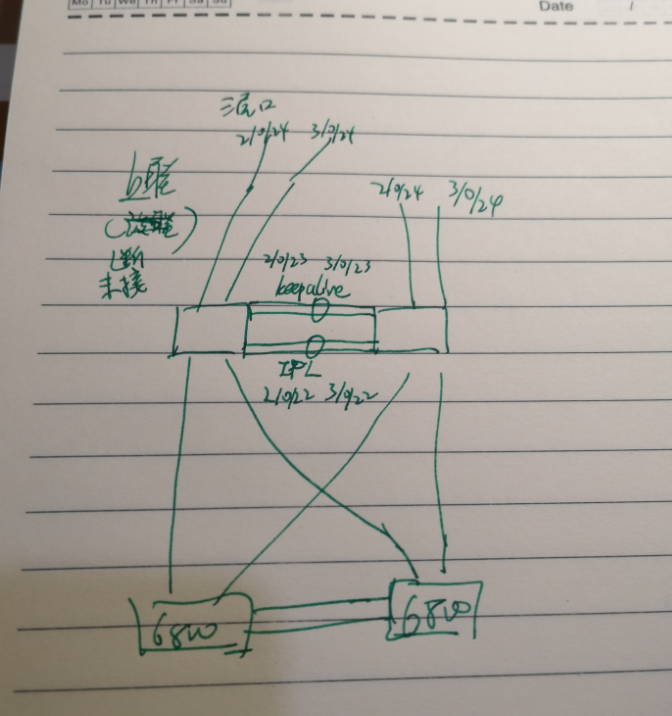 Mo Tu We Th Fr Sa Su
Date /
三层口
2/0/24 3/0/24
2/0/24 3/0/24
未接
2/0/23 3/0/23
keepalive
IPL
2/0/22 3/0/22
6800
6800